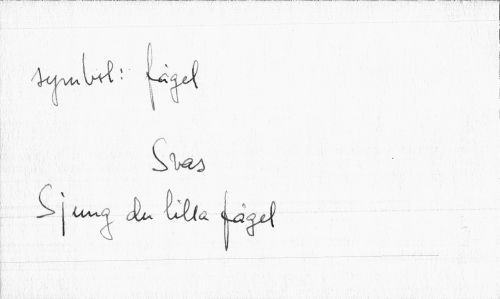 symbol: fågel
Svas
Sjung du lilla fågel